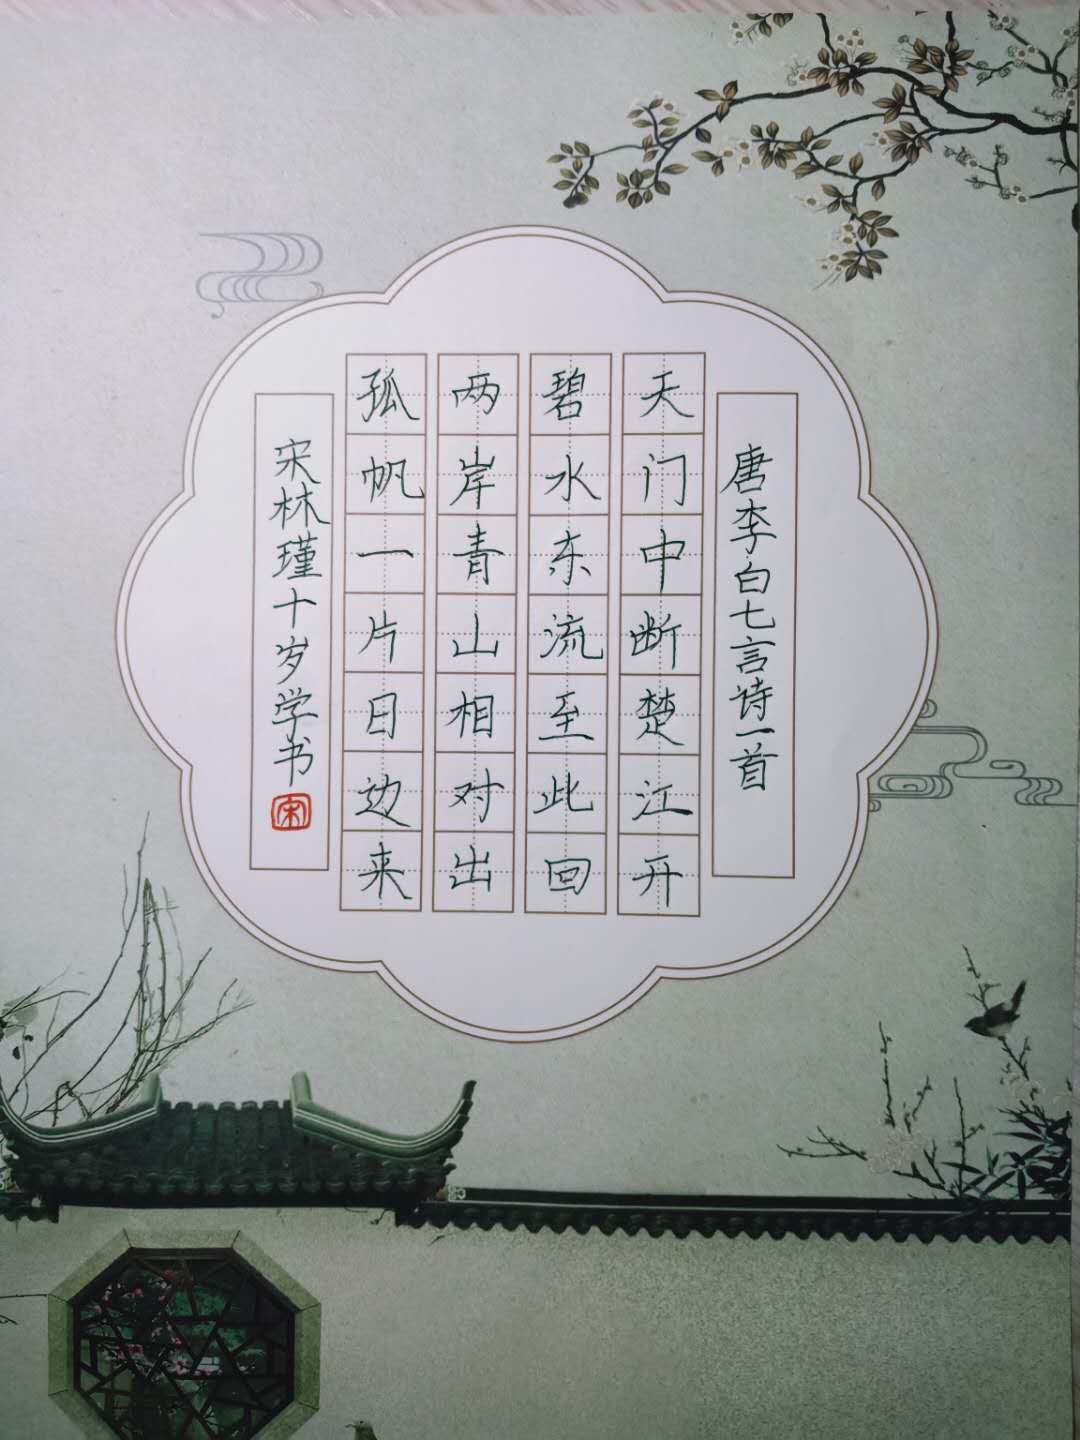 唐李白七言诗一首
天门中断楚江开
碧水东流至此回
两岸青山相对出
孤帆一片日边来
宋林瑾十岁学书
宋